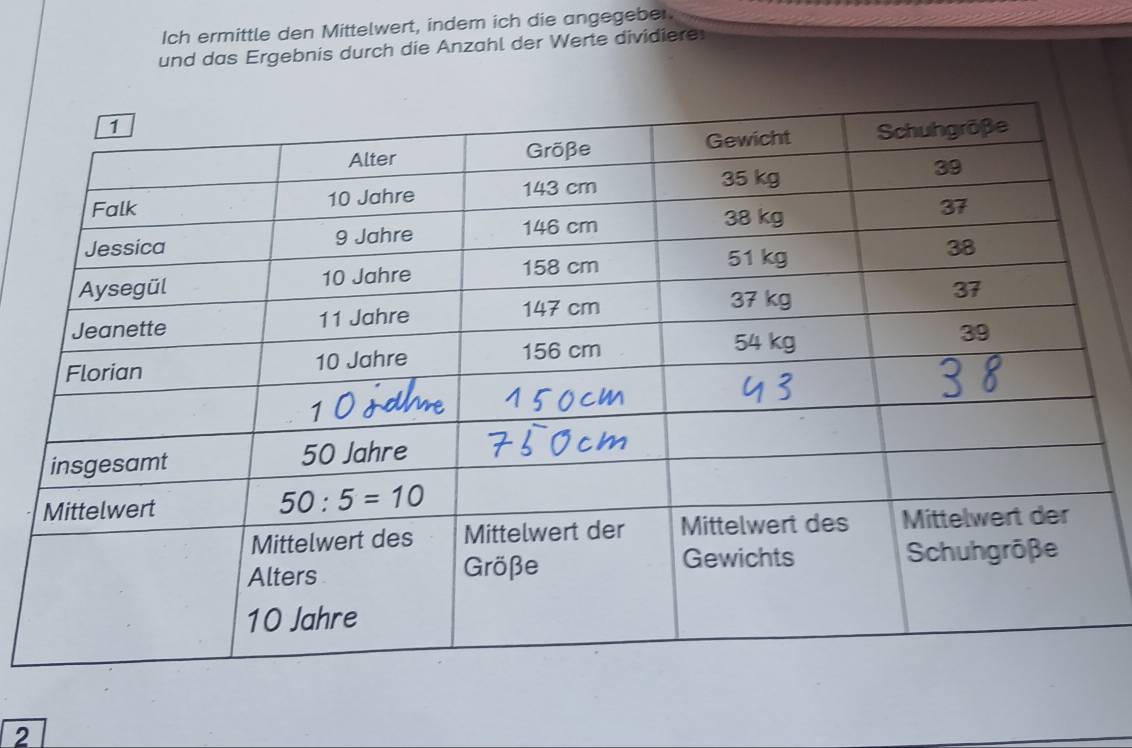 Ich ermittle den Mittelwert, indem ich die
und das Ergebnis durch die Anzahl der Werte
1
Alter Größe Gewicht Schuhgröße
Falk 10 Jahre 143 cm 35 kg 39
Jessica 9 Jahre 146 cm 38 kg 37
Aysegül 10 Jahre 158 cm 51 kg 38
Jeanette 11 Jahre 147 cm 37 kg 37
Florian 10 Jahre 156 cm 54 kg 39
10 Jahre 150cm 43 38
insgesamt 50 Jahre 750cm
Mittelwert 50 : 5 = 10
Mittelwert des Mittelwert der Mittelwert des Mittelwert der
Alters Größe Gewichts Schuhgröße
10 Jahre
2